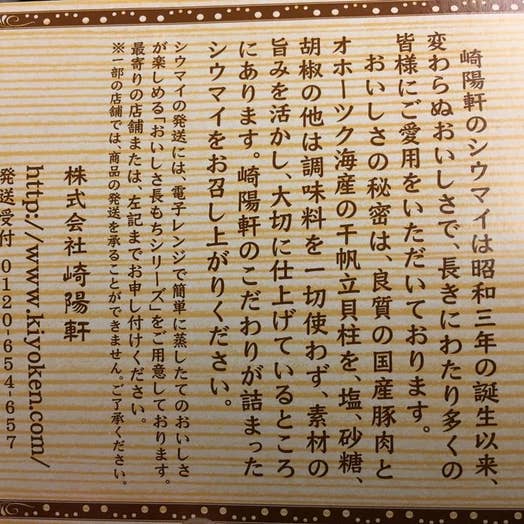 崎陽軒のシウマイは昭和三年の誕生以来、
変わらぬおいしさで、長きにわたり多くの
皆様にご愛用をいただいております。
おいしさの秘密は、良質の国産豚肉と
オホーツク海産の干帆立貝柱を、塩、砂糖、
胡椒の他は調味料を一切使わず、素材の
旨みを活かし、大切に仕上げているところ
にあります。崎陽軒のこだわりが詰まった
シウマイをお召し上がりください。
シウマイの発送には、電子レンジで簡単に蒸したてのおいしさ
が楽しめる「おいしさ長もちシリーズ」をご用意しております。
最寄りの店舗または、左記までお申し付けください。
※一部の店舗では、商品の発送を承ることができません。ご了承ください。
株式会社 崎陽軒
http://www.kiyoken.com/
発送受付 0120-654-657